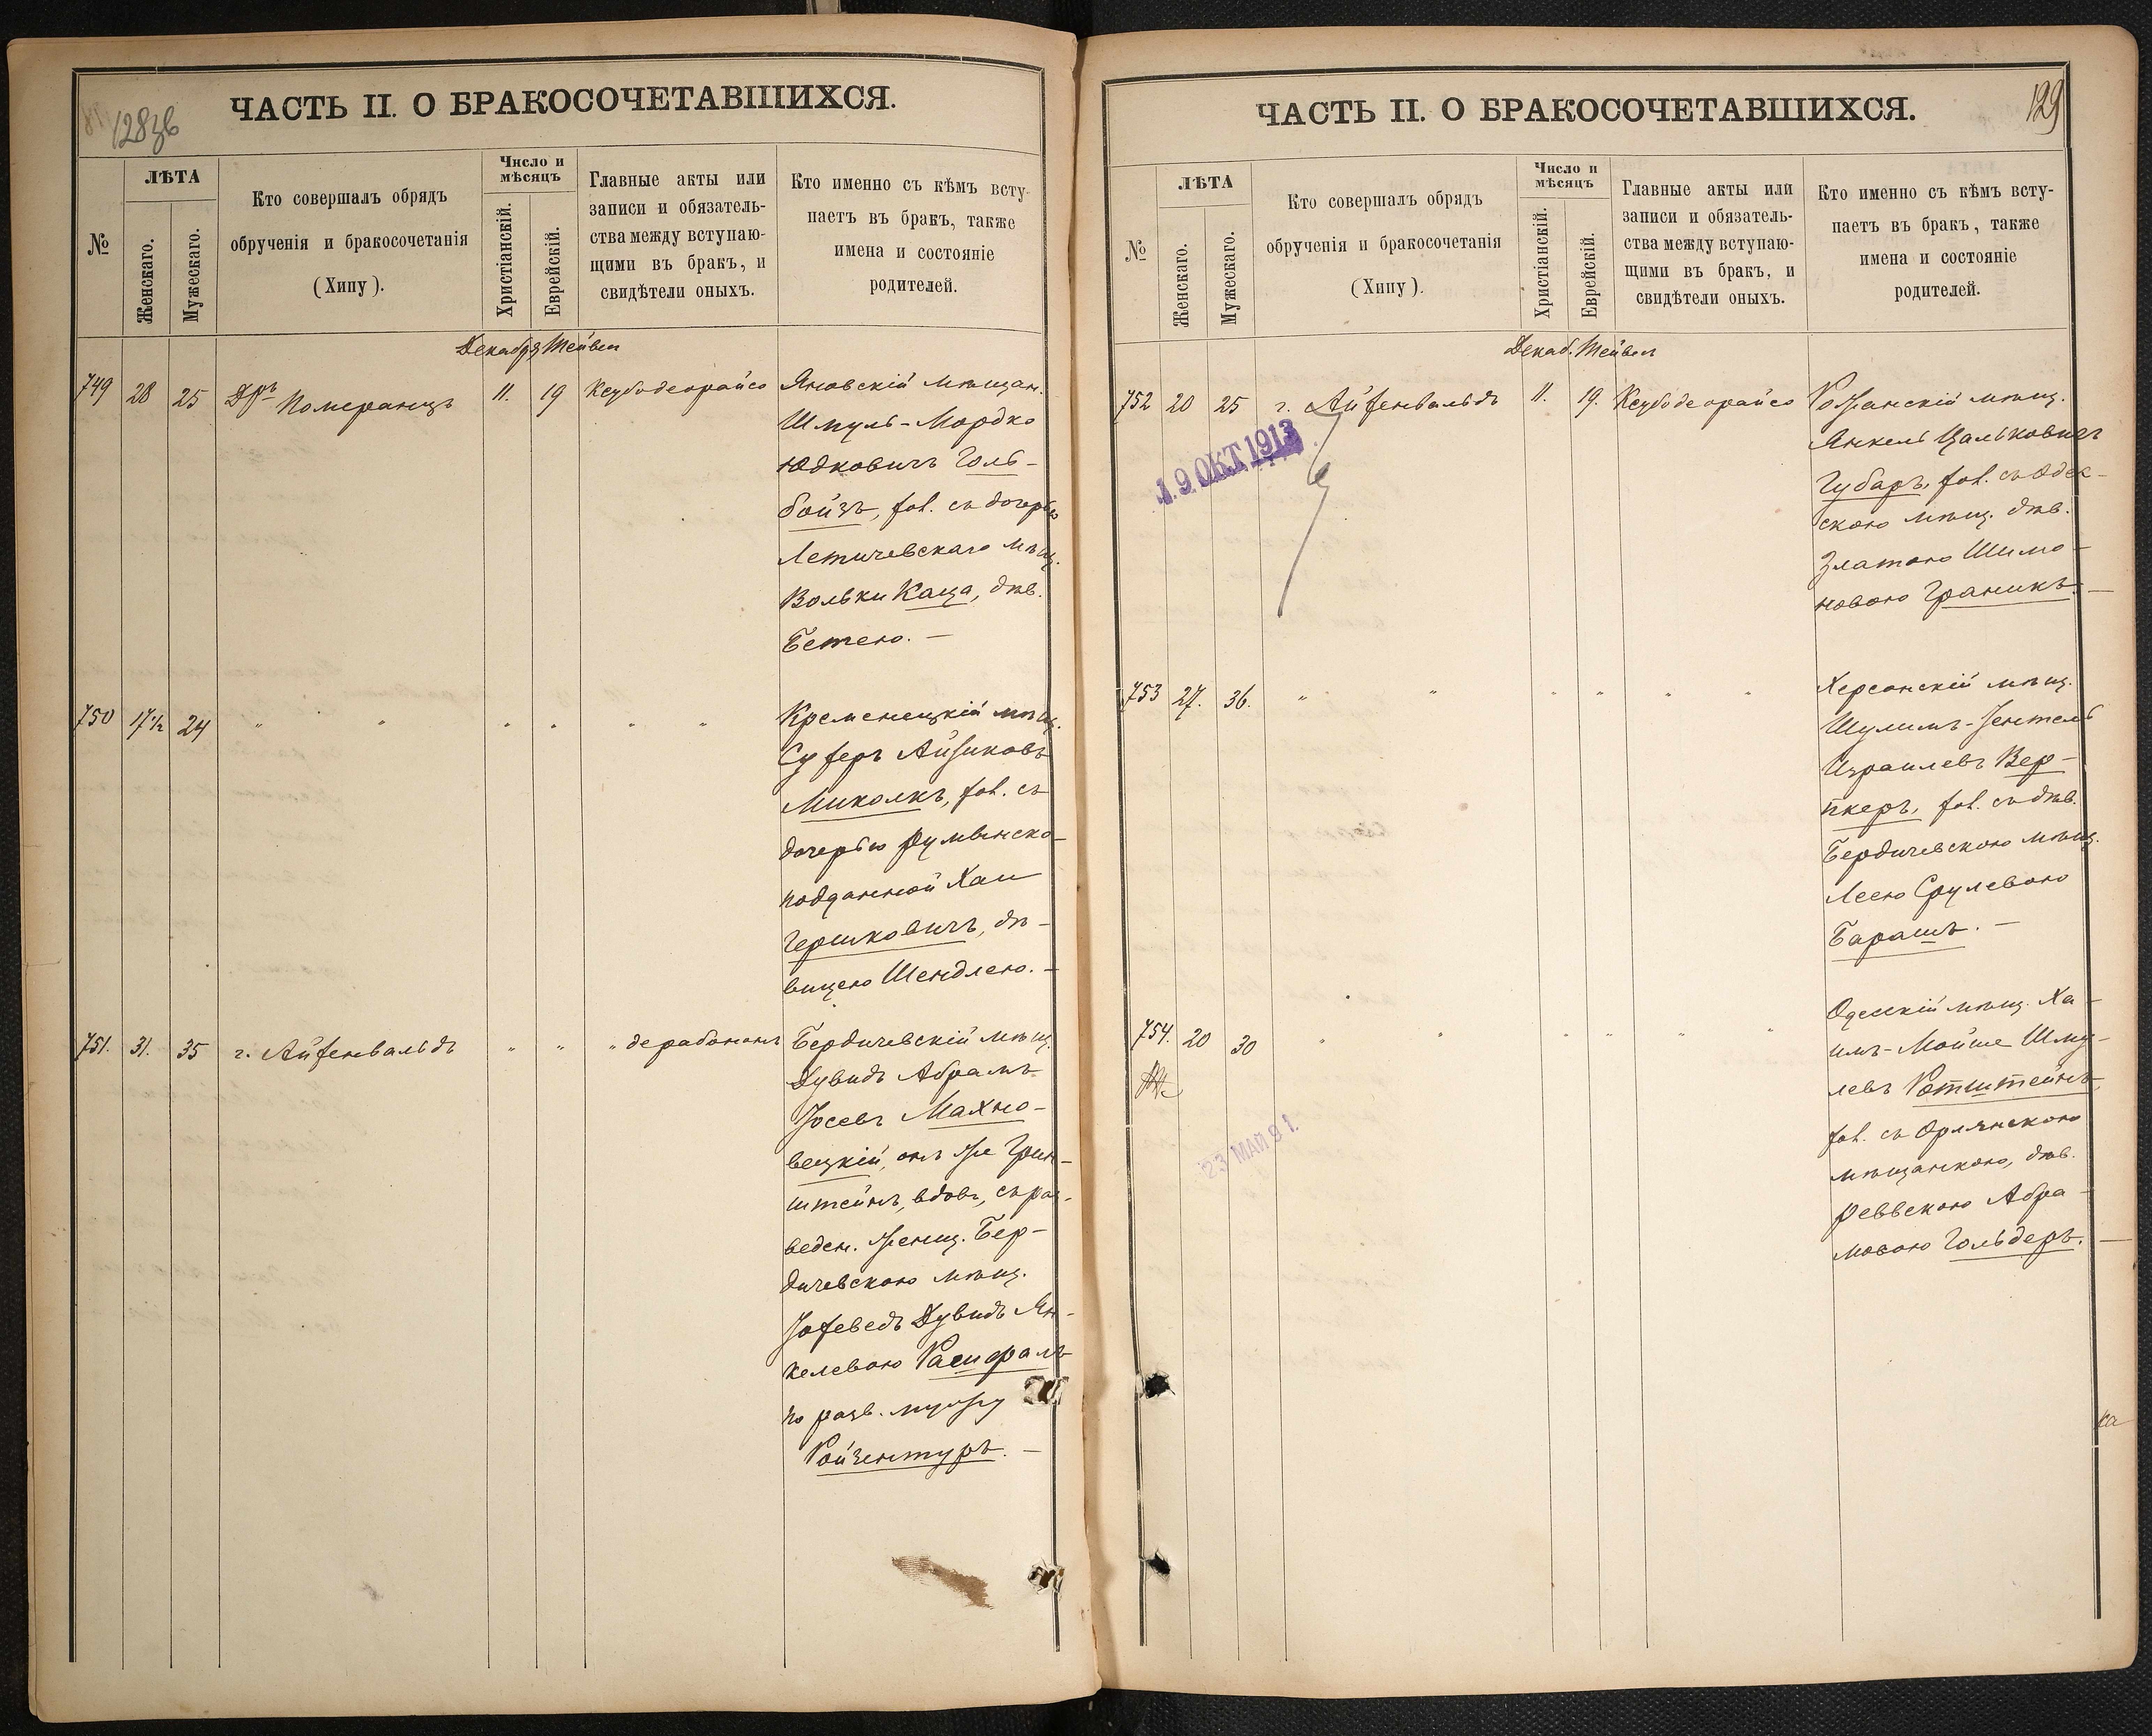 128зв
ЧАСТЬ II. О БРАКОСОЧЕТАВШИХСЯ.
№
ЛѢТА
Женскаго.
Мужескаго.
Кто совершалъ обрядъ
обрученія и бракосочетанія
(Хипу).
Число и
мѣсяцъ
Христіанскій.
Еврейскій.
Главные акты или
записи и обязатель-
ства между вступаю-
щими въ бракъ, и
свидѣтели оныхъ.
Кто именно съ кѣмъ всту-
паетъ въ бракъ, также
имена и состояніе
родителей.
Декабря Тейвес
749 28 25 Дръ Померанцъ 11. 19 Ксубо деорайсо Яновскій мѣщан.
Шмуль-Мордко
Юдковичъ Голь-
бойзъ, хол. съ дочерью
Летичевскаго мѣщ.
Вольки Каца, дѣв.
Бетею. —
750 17½ 24 " " " " " " Кременецкій мѣщ.
Сухеръ Айзиковъ
Миколкъ, хол. съ
дочерью Румынско-
подданной Хаи
Гершковичъ, дѣ-
вицею Шендлею. —
751. 31. 35 г. Айхенвальдъ " " " дерабононъ Бердичевскій мѣщ.
Дувидъ Абрамъ
Іосевъ Махно-
вецкій, онъ же Грин-
штейнъ, вдов., съ раз-
веден. женщ. Бер-
дичевскою мѣщ.
Іохеведъ Дувидъ Ян-
келевою
по разв. мужу
Ройзентуръ. —
129
ЧАСТЬ II. О БРАКОСОЧЕТАВШИХСЯ.
№
ЛѢТА
Женскаго.
Мужескаго.
Кто совершалъ обрядъ
обрученія и бракосочетанія
(Хипу).
Число и
мѣсяцъ
Христіанскій.
Еврейскій.
Главные акты или
записи и обязатель-
ства между вступаю-
щими въ бракъ, и
свидѣтели оныхъ.
Кто именно съ кѣмъ всту-
паетъ въ бракъ, также
имена и состояніе
родителей.
Декаб. Тейвес
752 20 25 г. Айхенвальдъ 11. 19. Ксубо деорайсо Рожанскій мѣщ.
Янкель Цальковичъ
Губаръ, хол. съ Одес-
скою мѣщ. дѣв.
Златою Шимо-
новою Граникъ. —
19 ОКТ 1913
753 27. 36. " " " " " " Херсонскій мѣщ.
Шулимъ-Зентель
Израилевъ Вер-
пкеръ, хол. съ дѣв.
Бердичевскою мѣщ.
Леею Срулевою
Барашъ. —
754. 20 30 " " " " " " Одесскій мѣщ. Ха-
имъ-Мойше Шму-
левъ Ротштейнъ,
хол. съ Орлянскою
мѣщанкою, дѣв.
Реввекою Абра-
мовою Гольдеръ. —
23 МАЙ 91.
ка